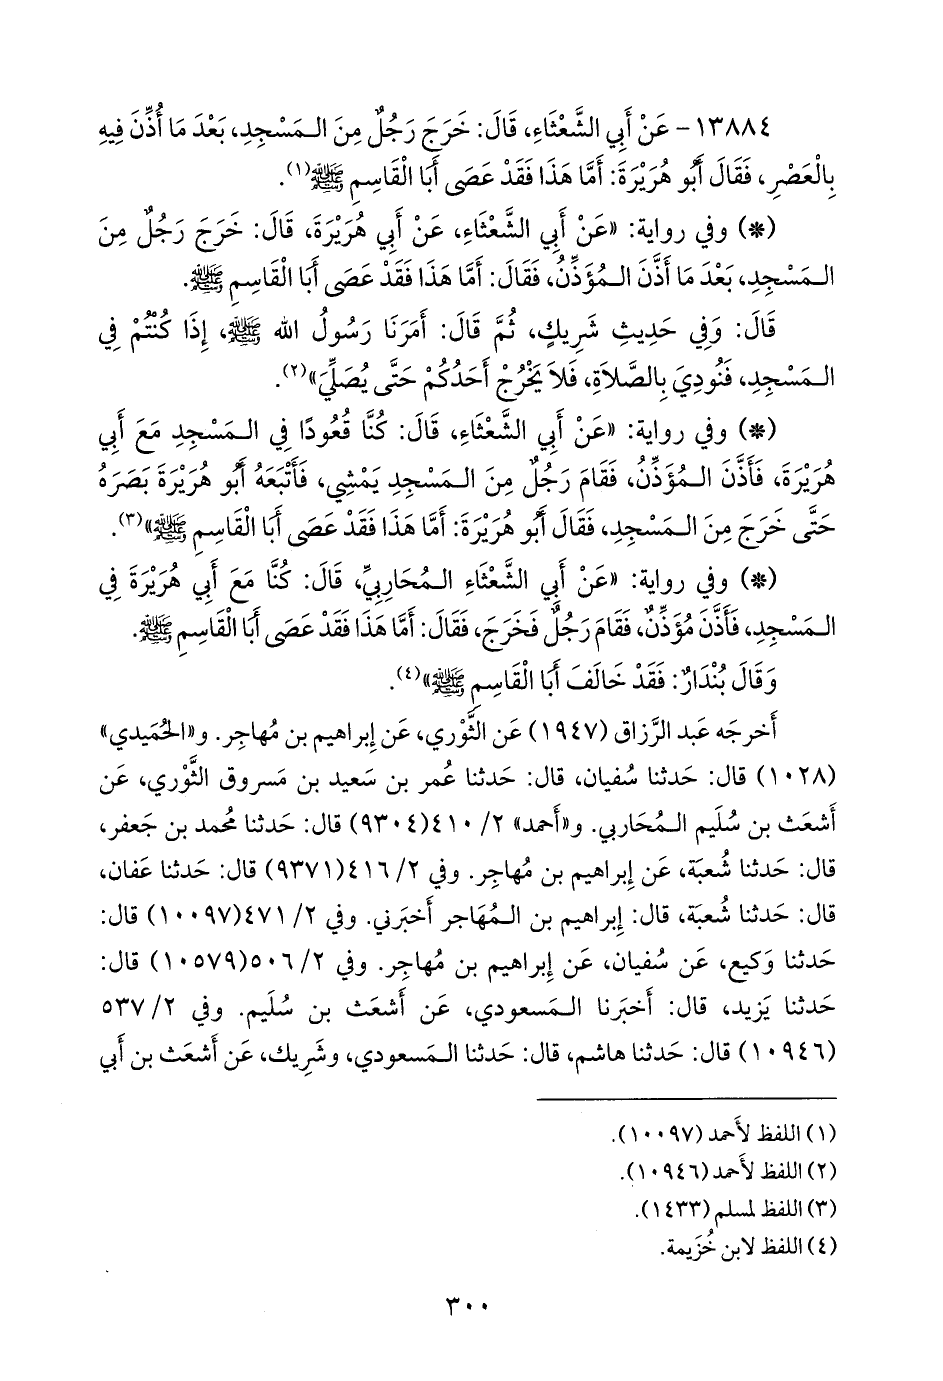 ١٣٨٨٤- عَنْ أَبِي الشَّعْثَاءِ، قَالَ: خَرَجَ رَجُلٌ مِنَ الـمَسْجِدِ، بَعْدَ مَا أُذِّنَ فِيهِ
بِالْعَصْرِ، فَقَالَ أَبُو هُرَيْرَةَ: أَمَّا هَذَا فَقَدْ عَصَى أَبَا الْقَاسِمِ ﷺ(١).
(*) وفي رواية: «عَنْ أَبِي الشَّعْثَاءِ، عَنْ أَبِي هُرَيْرَةَ، قَالَ: خَرَجَ رَجُلٌ مِنَ
الـمَسْجِدِ، بَعْدَ مَا أَذَّنَ الـمُؤَذِّنُ، فَقَالَ: أَمَّا هَذَا فَقَدْ عَصَى أَبَا الْقَاسِمِ ﷺ.
قَالَ: وَفِي حَدِيثِ شَرِيكٍ، ثُمَّ قَالَ: أَمَرَنَا رَسُولُ الله ﷺ، إِذَا كُنْتُمْ فِي
الـمَسْجِدِ، فَنُودِيَ بِالصَّلاَةِ، فَلاَ يَخْرُجْ أَحَدُكُمْ حَتَّى يُصَلِّيَ»(٢).
(*) وفي رواية: «عَنْ أَبِي الشَّعْثَاءِ، قَالَ: كُنَّا قُعُودًا فِي الـمَسْجِدِ مَعَ أَبِي
هُرَيْرَةَ، فَأَذَّنَ الـمُؤَذِّنُ، فَقَامَ رَجُلٌ مِنَ الـمَسْجِدِ يَمْشِي، فَأَتْبَعَهُ أَبُو هُرَيْرَةَ بَصَرَهُ
حَتَّى خَرَجَ مِنَ الـمَسْجِدِ، فَقَالَ أَبُو هُرَيْرَةَ: أَمَّا هَذَا فَقَدْ عَصَى أَبَا الْقَاسِمِ ﷺ»(٣).
(*) وفي رواية: «عَنْ أَبِي الشَّعْثَاءِ الـمُحَارِبيِّ، قَالَ: كُنَّا مَعَ أَبِي هُرَيْرَةَ فِي
الـمَسْجِدِ، فَأَذَّنَ مُؤَذِّنٌ، فَقَامَ رَجُلٌ فَخَرَجَ، فَقَالَ: أَمَّا هَذَا فَقَدْ عَصَى أَبَا الْقَاسِمِ ﷺ.
وَقَالَ بُنْدَارٌ: فَقَدْ خَالَفَ أَبَا الْقَاسِمِ ﷺ»(٤).
أَخرجَه عَبد الرَّزاق (١٩٤٧) عَن الثَّوْري، عَن إِبراهيم بن مُهاجر. و«الحُمَيدي»
(١٠٢٨) قال: حَدثنا سُفيان، قال: حَدثنا عُمر بن سَعيد بن مَسروق الثَّوْري، عَن
أَشعَث بن سُلَيم الـمُحَاربي. و«أَحمد» ٢/ ٤١٠(٩٣٠٤) قال: حَدثنا مُحمد بن جَعفر،
قال: حَدثنا شُعبَة، عَن إِبراهيم بن مُهاجِر. وفي ٢/ ٤١٦(٩٣٧١) قال: حَدثنا عَفان،
قال: حَدثنا شُعبَة، قال: إِبراهيم بن الـمُهَاجر أَخبَرني. وفي ٢/ ٤٧١(١٠٠٩٧) قال:
حَدثنا وَكيع، عَن سُفيان، عَن إِبراهيم بن مُهاجِر. وفي ٢/ ٥٠٦(١٠٥٧٩) قال:
حَدثنا يَزيد، قال: أَخبَرنا الـمَسعودي، عَن أَشعَث بن سُلَيم. وفي ٢/ ٥٣٧
(١٠٩٤٦) قال: حَدثنا هاشم، قال: حَدثنا الـمَسعودي، وشَرِيك، عَن أَشعَث بن أَبي
(١) اللفظ لأَحمد (١٠٠٩٧).
(٢) اللفظ لأَحمد (١٠٩٤٦).
(٣) اللفظ لمسلم (١٤٣٣).
(٤) اللفظ لابن خُزَيمة.
٣٠٠